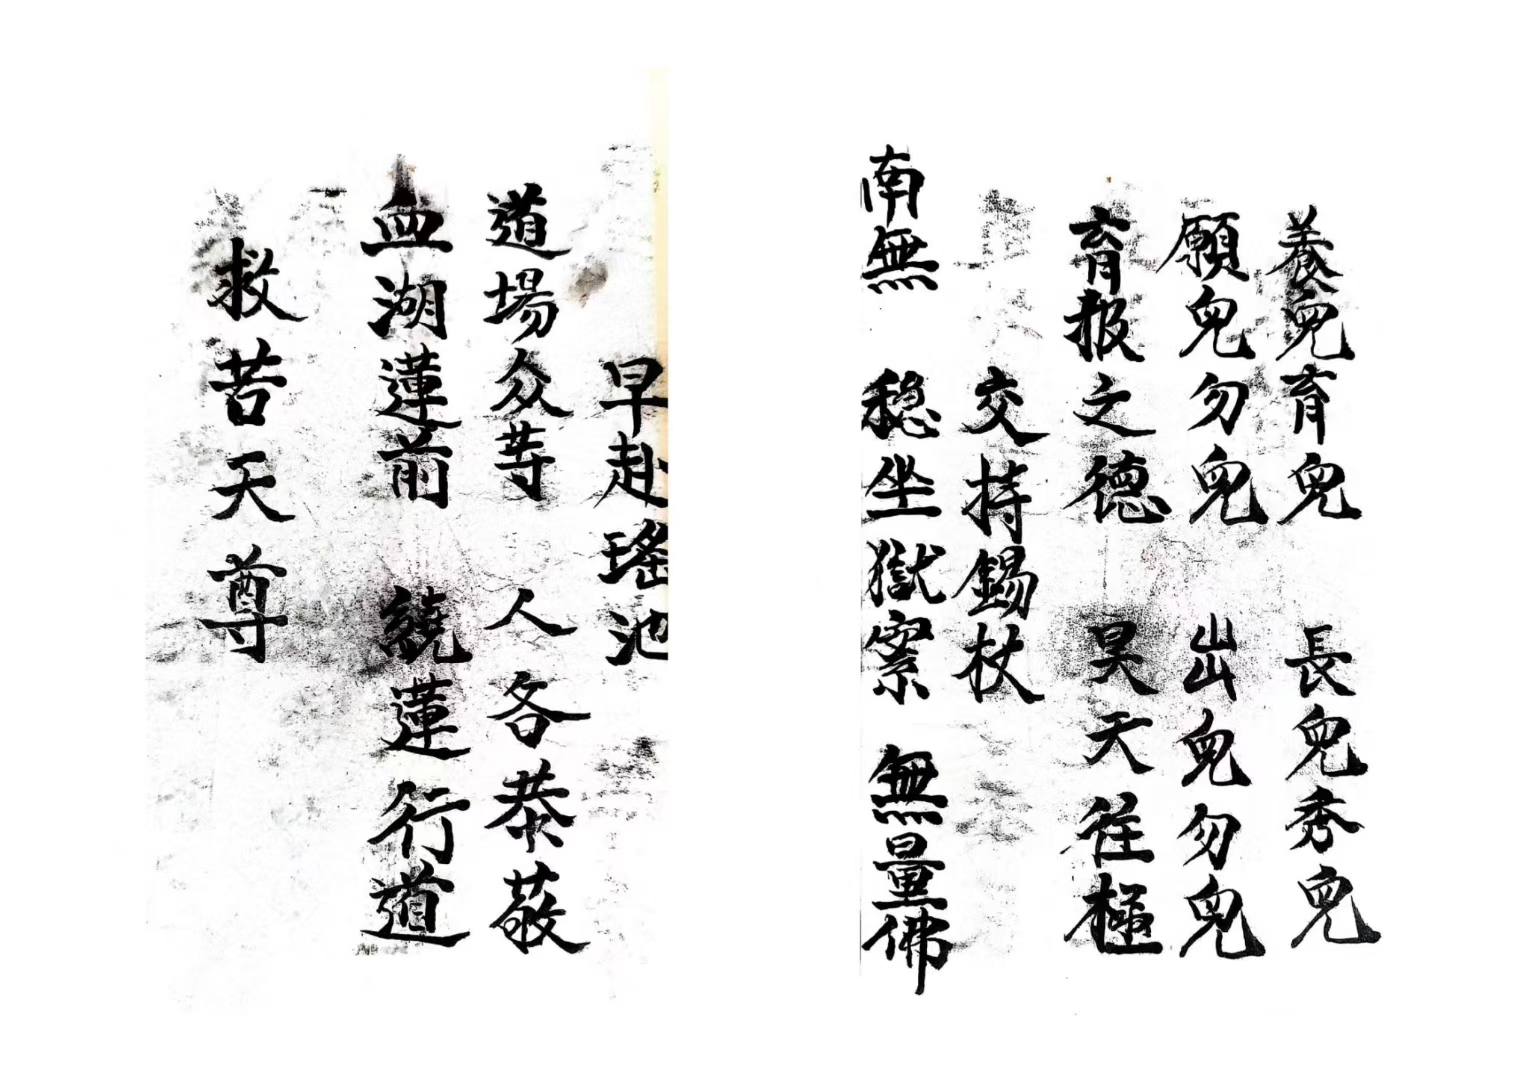 養兒育兒　長兒秀兒
願兒勿兒　出兒勿兒
育报之德　昊天徃極
交持錫杖
南無　穏坐獄案　無量佛
早赴瑤池
道場众荨　人各恭敬
血湖蓮前　繞蓮行道
救苦天尊